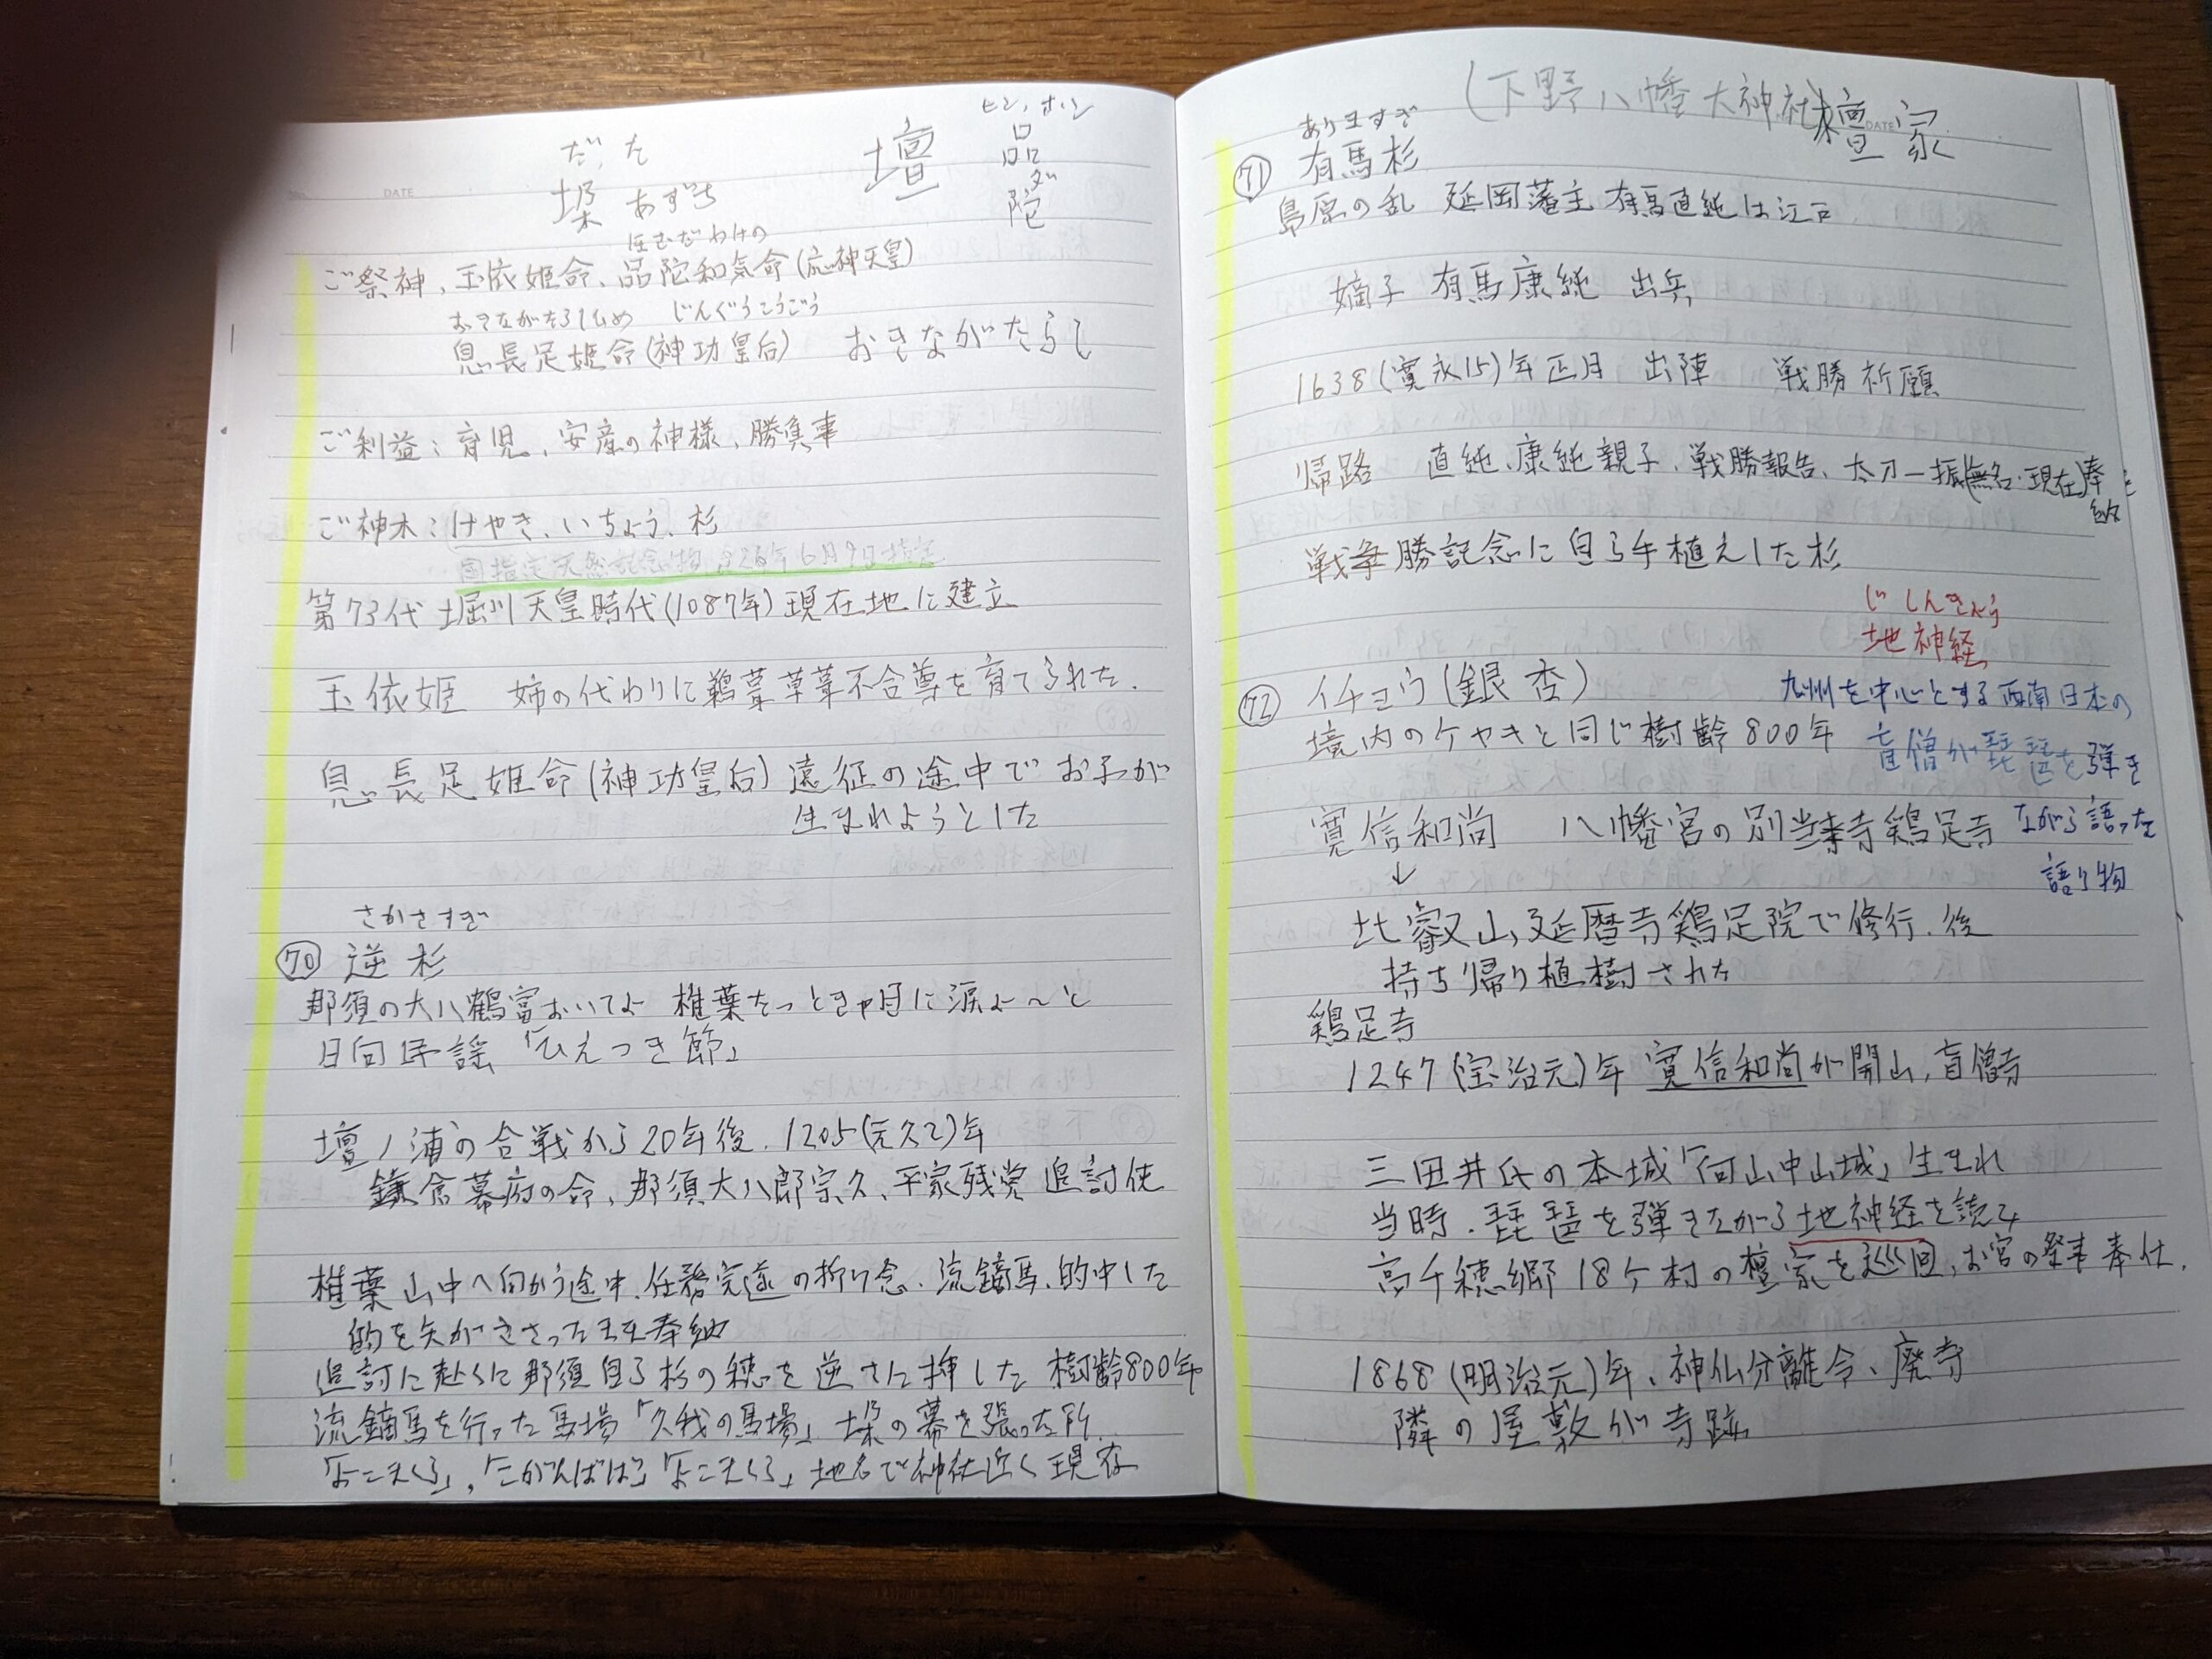 だ、た
垜 あずち
壇
ヒン、ホン
品
ダ
陀
ほむだわけの
ご祭神、玉依姫命、品陀和気命(応神天皇)
おきながたらしひめ じんぐうこうごう
息長足姫命(神功皇后) おきながたらし
ご利益:育児、安産の神様、勝負事
ご神木:けやき、いちょう、杉
国指定天然記念物 S26年6月9日指定
第73代 堀川天皇時代(1087年)現在地に建立
玉依姫 姉の代わりに鵜葺草葺不合尊を育てられた.
息長足姫命(神功皇后)遠征の途中でお子が
生まれようとした
さかさすぎ
⑦⓪ 逆杉
那須の大八鶴富おいてよ 椎葉たつときゃ目に涙よ〜と
日向民謡「ひえつき節」
壇ノ浦の合戦から20年後.1205(元久2)年
鎌倉幕府の命、那須大八郎宗久、平家残党 追討使
椎葉山中へ向かう途中、任務完遂の祈り念.流鏑馬、的中した
的を矢がささったまま奉納
追討に赴くに那須自ら杉の穂を逆さに挿した 樹齢800年
流鏑馬を行った馬場「久我の馬場」垜の幕を張った所.
「よこまくら」,「こがんばば」「よこまくら」地名で神社近く現存
(下野八幡大神社)
檀家
DATE
ありますぎ
㉛ 有馬杉
島原の乱 延岡藩主 有馬直純は江戸
嫡子 有馬康純 出兵
1638(寛永15)年正月 出陣 戦勝祈願
帰路 直純、康純親子、戦勝報告、太刀一振(無名・現在)奉納
戦争勝記念に自ら手植えした杉
じしんきょう
地神経
九州を中心とする西南日本の
盲僧が琵琶を弾き
ながら語った
語り物
72 イチョウ(銀杏)
境内のケヤキと同じ樹齢800年
寛信和尚 八幡宮の別当寺鶏足寺
↓
比叡山延暦寺鶏足院で修行.後
持ち帰り植樹された
鶏足寺
1247(宝治元)年 寛信和尚が開山,盲僧寺
三田井氏の本城「向山中山城」生まれ
当時.琵琶を弾きながら地神経を読み
高千穂郷18ヶ村の檀家を巡回,お宮の祭事奉仕.
1868(明治元)年、神仏分離令、廃寺
隣の屋敷が寺跡